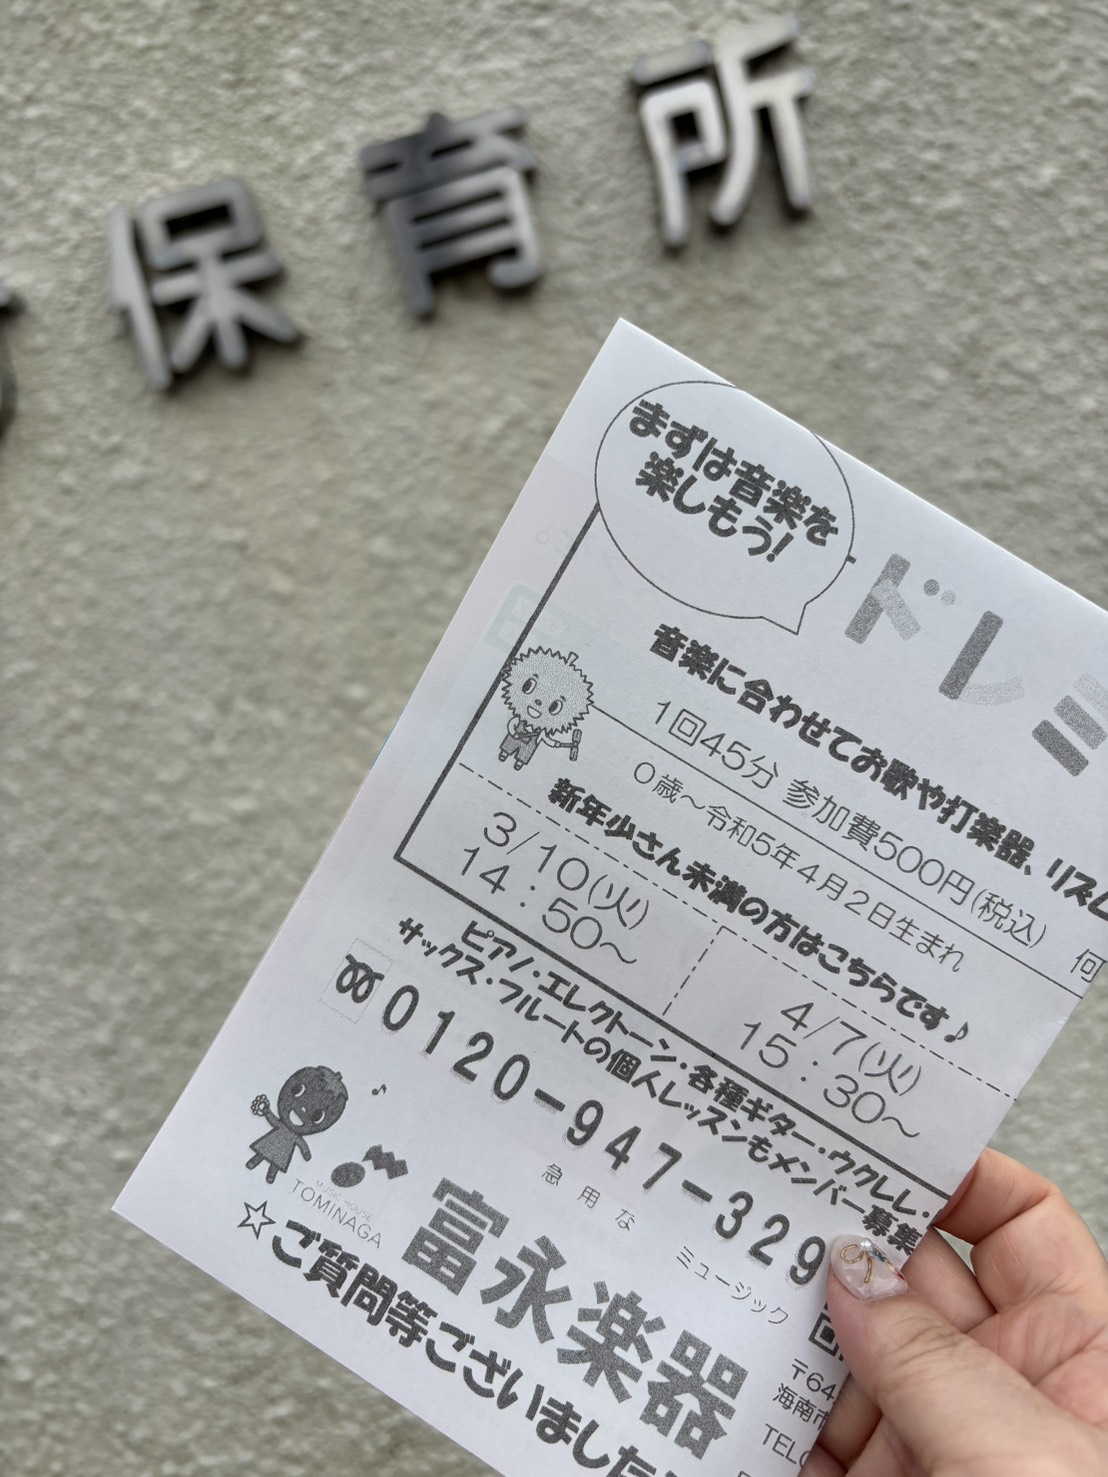 保育所
まずは音楽を
楽しもう!
ドレミ
音楽に合わせてお歌や打楽器、リズム
1回45分 参加費500円(税込)
0歳～令和5年4月2日生まれ 何
新年少さん未満の方はこちらです♪
3/10(火)
14:50～
4/7(火)
15:30～
ピアノ・エレクトーン・各種ギター・ウクレレ・
サックス・フルートの個人レッスンもメンバー募集
0120-947-329
急用な ミュージック
MUSIC HOUSE
TOMINAGA
富永楽器
〒64
海南市
TEL
☆ご質問等ございました